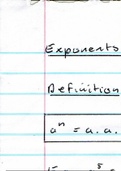 Exponents
Definition
aⁿ = a.a.